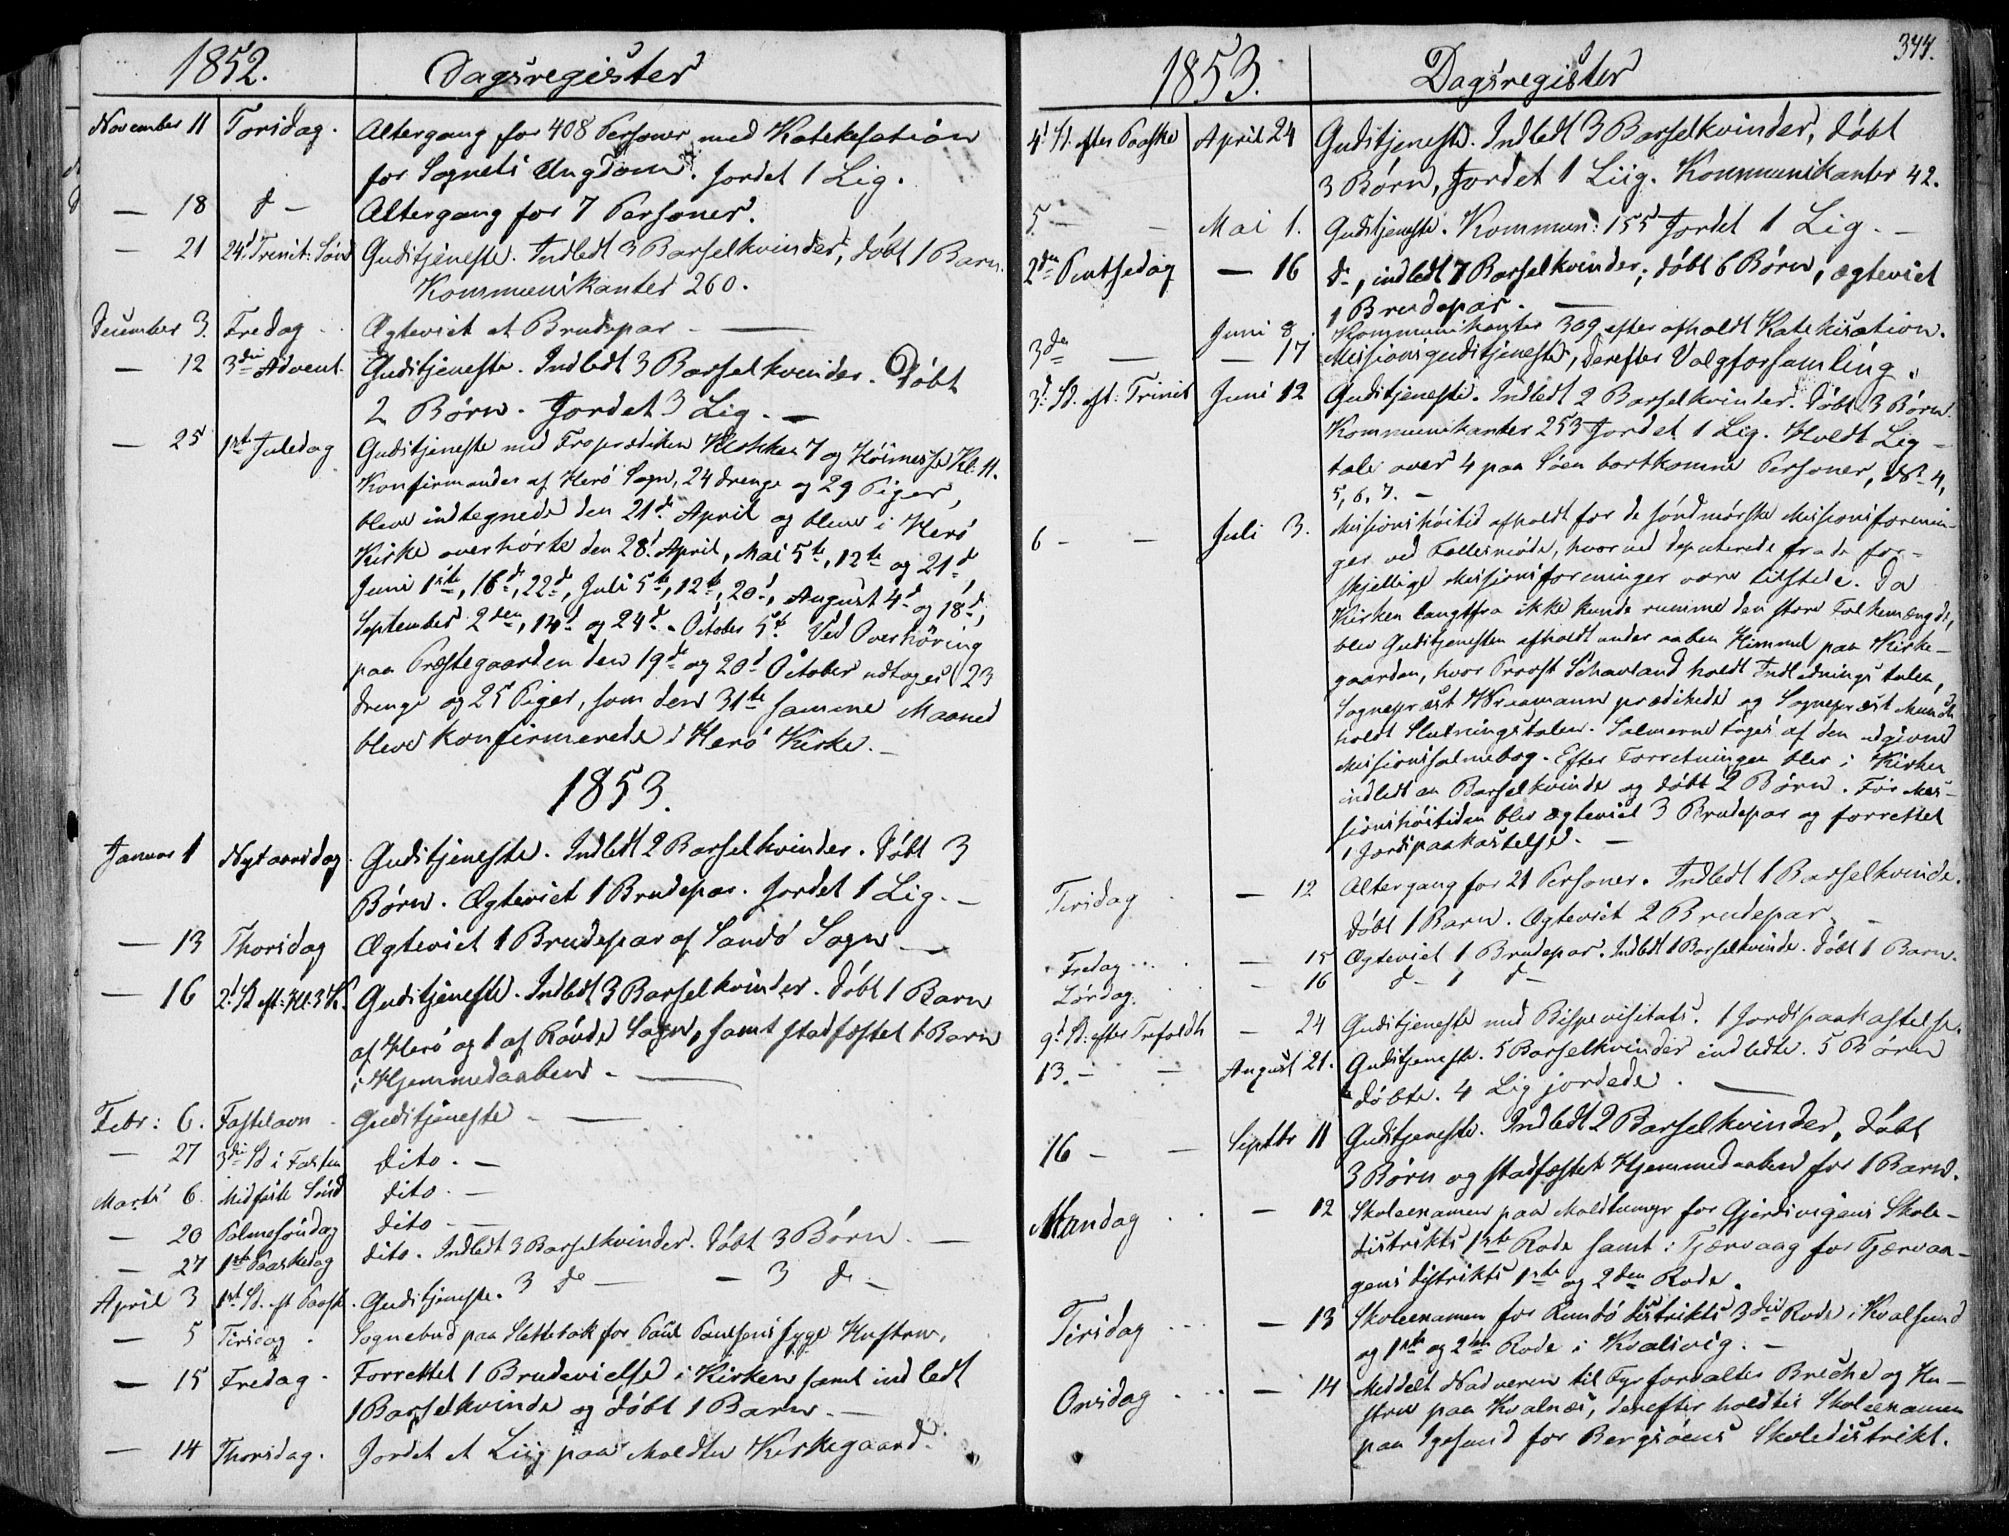 1852. Dagsregister
November 11 Torsdag. Altergang for 408 Personer med Katekesation
for Sognets Ungdom. Jordet 1 Lig.
— 18 d– Altergang for 7 Personer.
— 21 24d Trinit: Sønd Gudstjeneste. Indledt 3 Barselkvinder, døbt 1 Barn.
Kommunikanter 260.
December 3. Fredag Ægteviet et Brudepar. —
— 12 3die Advent. Gudstjeneste. Indledt 3 Barselkvinder. Døbt
2 Børn. Jordet 3 Lig. —
— 25 1ste Juledag Gudstjeneste med Froprædiken Klokken 7 og Høimesse Kl. 11.
Konfirmander af Herø Sogn, 24 Drenge og 29 Piger,
bleve indtegnede den 21d April og bleve i Herø
Kirke overhørte den 28d April, Mai 5te, 12te og 21d
Juni 1ste, 16d, 22d, Juli 5te, 12te, 20d, August 4d og 18d,
September 2den, 14d og 24d. October 5te. Ved Overhøring
paa Præstegaarden den 19de og 20d October udtoges 23
Drenge og 25 Piger, som den 31te samme Maaned
bleve konfirmerede i Herø Kirke. —
1853.
Januar 1 Nytaarsdag. Gudstjeneste. Indledt 2 Barselkvinder. Døbt 3
Børn. Ægteviet 1 Brudepar. Jordet 1 Lig. —
— 13 Thorsdag Ægteviet 1 Brudepar af Sandø Sogn —
— 16 2d S. eft: Hl. 3 K. Gudstjeneste. Indledt 3 Barselkvinder. Døbt 1 Barn
af Herø og 1 af Røvde Sogn, samt stadfæstet 1 Barn
i Hjemmedaaben. —
Febr: 6. Fastelavn Gudstjeneste —
— 27 3die S. i Fasten dito. —
Marts 6. Midfaste Sønd dito. —
— 20 Palmesøndag dito —
— 27 1ste Paaskedag dito. Indledt 3 Barselkvinder. Døbt 3 Børn. —
April 3 1ste S. eft Paask. Gudstjeneste. 3 do — — 3 do —
— 5 Tirsdag. Sognebud paa Slettebak for Paul Paulsens syge Hustru.
— 15 Fredag. Forrettet 1 Brudevielse i Kirken samt indledt
1 Barselkvinde og døbt 1 Barn. —
— 14 Thorsdag. Jordet et Liig paa Moldtu Kirkegaard.
344.
1853. Dagsregister
4d S. efter Paaske April 24 Gudstjeneste. Indledt 3 Barselkvinder, døbt
3 Børn, Jordet 1 Liig. Kommunikanter 42.
5. — — Mai 1. Gudstjeneste. Kommun: 155 Jordet 1 Lig. —
2den Pintsedag — 16 do, indledt 7 Barselkvinder, døbt 6 Børn, ægteviet
1 Brudepar. —
Juni 8. Kommunikanter 309 efter afholdt Katekisation.
3de — — 17 Missionsgudstjeneste, derefter Valgforsamling.
3d S. eft: Trinit Juni 12 Gudstjeneste. Indledt 2 Barselkvinder. Døbt 3 Børn.
Kommunikanter 253 Jordet 1 Lig. Holdt Lig-
tale over 4 paa Søen bortkomne Personer, No 4,
5, 6, 7. —
6 — — Juli 3. Missionshøitid afholdt for de søndmørske Missionsforenin-
ger ved Fællesmøde, hvor ved deputerede fra de for-
skjellige Missionsforeninger vare tilstede. Da
Kirken langtfra ikke kunde rumme den store Folkemængde,
blev Gudstjenesten afholdt under aaben Himmel paa Kirke-
gaarden, hvor Provst Schavland holdt Indledningstalen,
Sognepræst prædikede og Sognepræst Munch
holdt Slutningstalen. Salmerne toges af den udgivne
Missionssalmebog. Efter Forretningen blev i Kirken
indledt en Barselkvinde og døbt 2 Børn. Før Mis-
sionshøitiden blev ægteviet 3 Brudepar og forrettet
1 Jordspaakastelse. —
Tirsdag — 12 Altergang for 21 Personer. Indledt 1 Barselkvinde.
døbt 1 Barn. Ægteviet 2 Brudepar. —
Fredag — 15 Ægteviet 1 Brudepar. Indledt 1 Barselkvinde. Døbt 1 Barn.
Lørdag. — 16 d– 1 d–
9d S. efter Trefoldh — 24 Gudstjeneste med Bispevisitats. 1 Jordspaakastelse.
13. — — August 21. Gudstjeneste. 5 Barselkvinder indledte. 5 Børn
døbte. 4 Lig jordede. —
16 — — Septbr 11 Gudstjeneste. Indledt 2 Barselkvinder, døbt
3 Børn og stadfæstet Hjemmedaaben for 1 Barn.
Mandag — 12 Skoleexamen paa Moldtumyr for Gjerdsvigens Skole-
distrikts 1ste Rode samt i Tjærvaag for Tjærvaa-
gens Distrikts 1ste og 2den Rode.
Tirsdag — 13 Skoleexamen for Rundø Distrikts 3die Rode i Kvalsund
og 1ste og 2den Rode i Kvalsvig. —
Onsdag — 14 Meddelt Nadveren til Fyrforvalter Breche og Hu-
stru paa Kvalnes, derefter holdtes Skoleexamen
paa Igesund for Bergsøens Skoledistrikt.